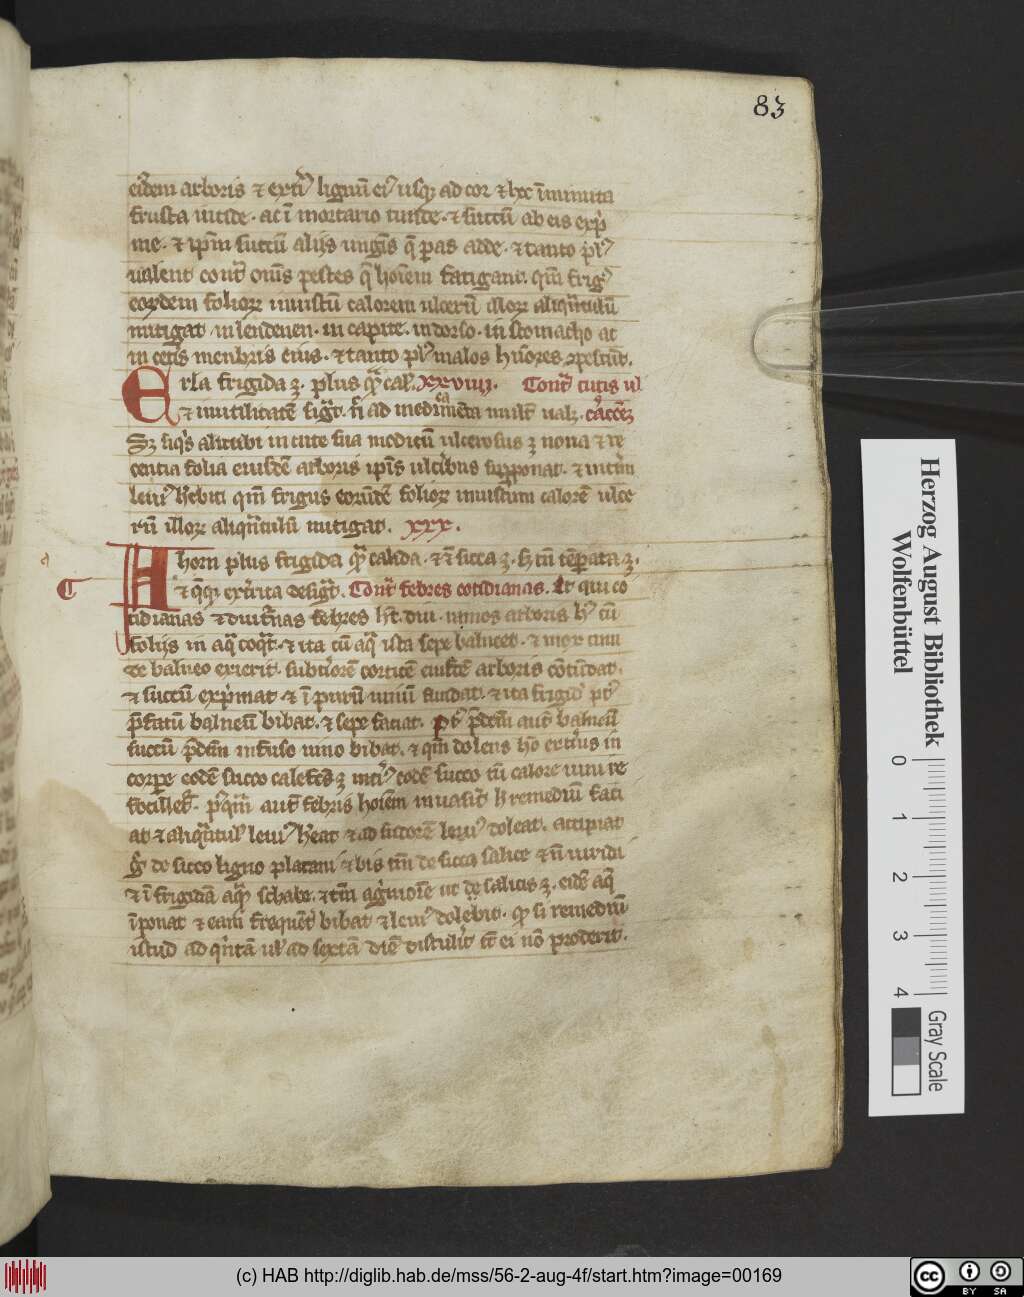 83
eiusdem arboris et exterius lignum eius usque ad cor et hec in minuta
frusta incide. ac in mortario tunde. et succum ab eis expri
me. et ipsum succum aliis ungentis que paras adde. et tanto plus
valent contra omnes pestes que hominem fatigant. quoniam frigus
eorundem foliorum iniustum calorem ulcerum illorum aliquantulum
mitigat in lendenen. in capite. in dorso. in stomacho ac
in ceteris menbris eius. et tanto plus malos humores
Erla frigida est. plus quam cal. xxviiii. Contra cutis ul
et inutilitatem signat. nec ad medicamenta multum valet.
Sed si quis alicubi in cute sua modicum ulcerosus est nova et re
centia folia eiusdem arboris ipsis ulceribus superponat. et interim
levius habebit quoniam frigus eorundem foliorum iniustum calorem ulce
rum illorum aliquantulum mitigat. xxx.
Ahorn plus frigida quam calida. et est sicca est. sed tamen temperata est.
et quequam exterrita designat. Contra febres cotidianas. Et qui co
tidianas et diuturnas febres habet diu. ramos arboris huius cum
foliis in aqua coquat. et ita cum aqua ista sepe balneet. et mox cum
de balneo exierit. subteriorem corticem eiusdem arboris contundat.
et succum exprimat et in purum vinum fundat. et ita frigidum post
prefatum balneum bibat. et sepe faciat. Post predictum autem balneum
succum predictum infuso vino bibat. et quoniam dolens homo exterius in
corpore eodem succo calefactus est interius eodem succo cum calore vini re
focilletur. Postquam autem febris hominem invaserit hoc remedium faci
at et aliquantulum levius habeat et ad sudorem levius doleat. accipiat
ergo de sicco ligno platani et bis tantum de sicca salice et non viridi
et in frigidam aquam schabe. et tamen a gravitate ut de salicis est. eidem aque
imponat et eam frequenter bibat et levius dolebit. quod si remedium
istud ad quintam vel ad sextam diem distulerit tunc ei non proderit.
Herzog August Bibliothek
Wolfenbüttel
0 1 2 3 4
Gray Scale
(c) HAB http://diglib.hab.de/mss/56-2-aug-4f/start.htm?image=00169
cc BY SA